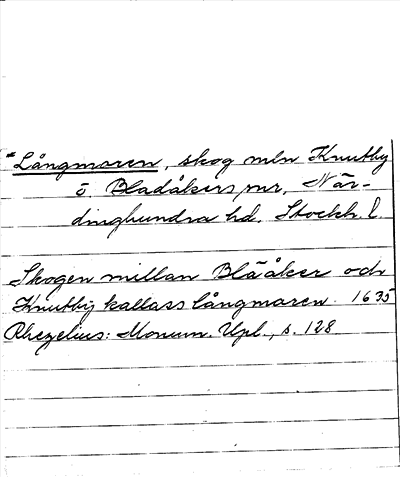 *Långmaren, skog mln Knutby
o. Bladåkers snr, När-
dinghundra hd. Stockh. l.
Skogen millan Blååker och
Knutbÿ kallass långmaren. 1635
Rhezelius: Monum. Upl., s. 128